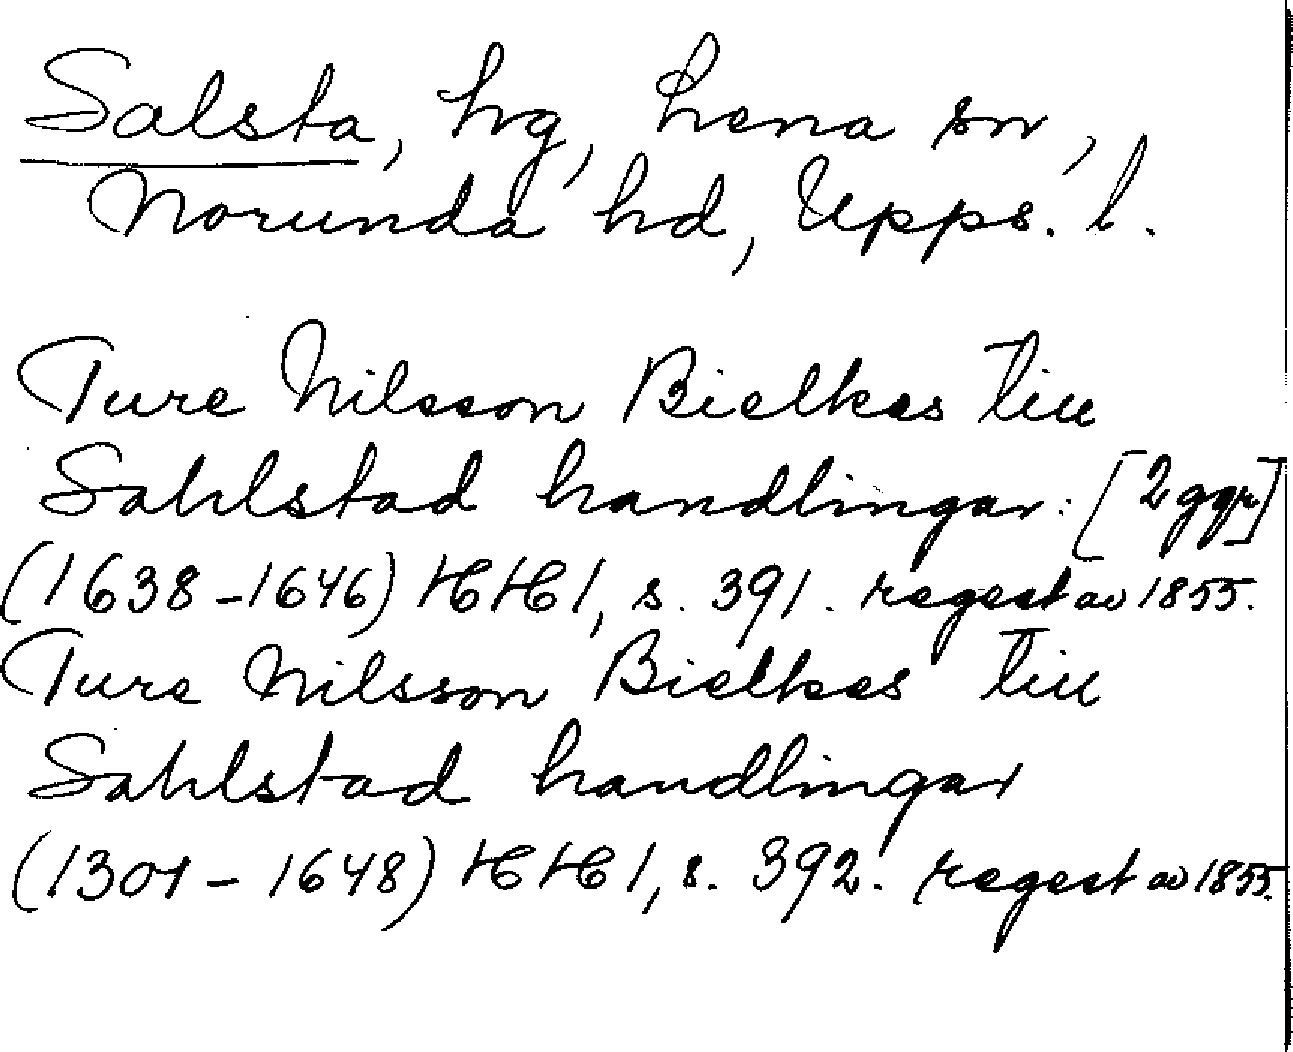 Salsta, hg, Lena sn,
Norunda hd, Upps. l.
Ture Nilsson Bielkes till
Sahlstad handlingar. [2 ggr]
(1638-1646) HH 1, s. 391. regest av 1855.
Ture Nilsson Bielkes till
Sahlstad handlingar
(1301 - 1648) HH 1, s. 392. regest av 1855.